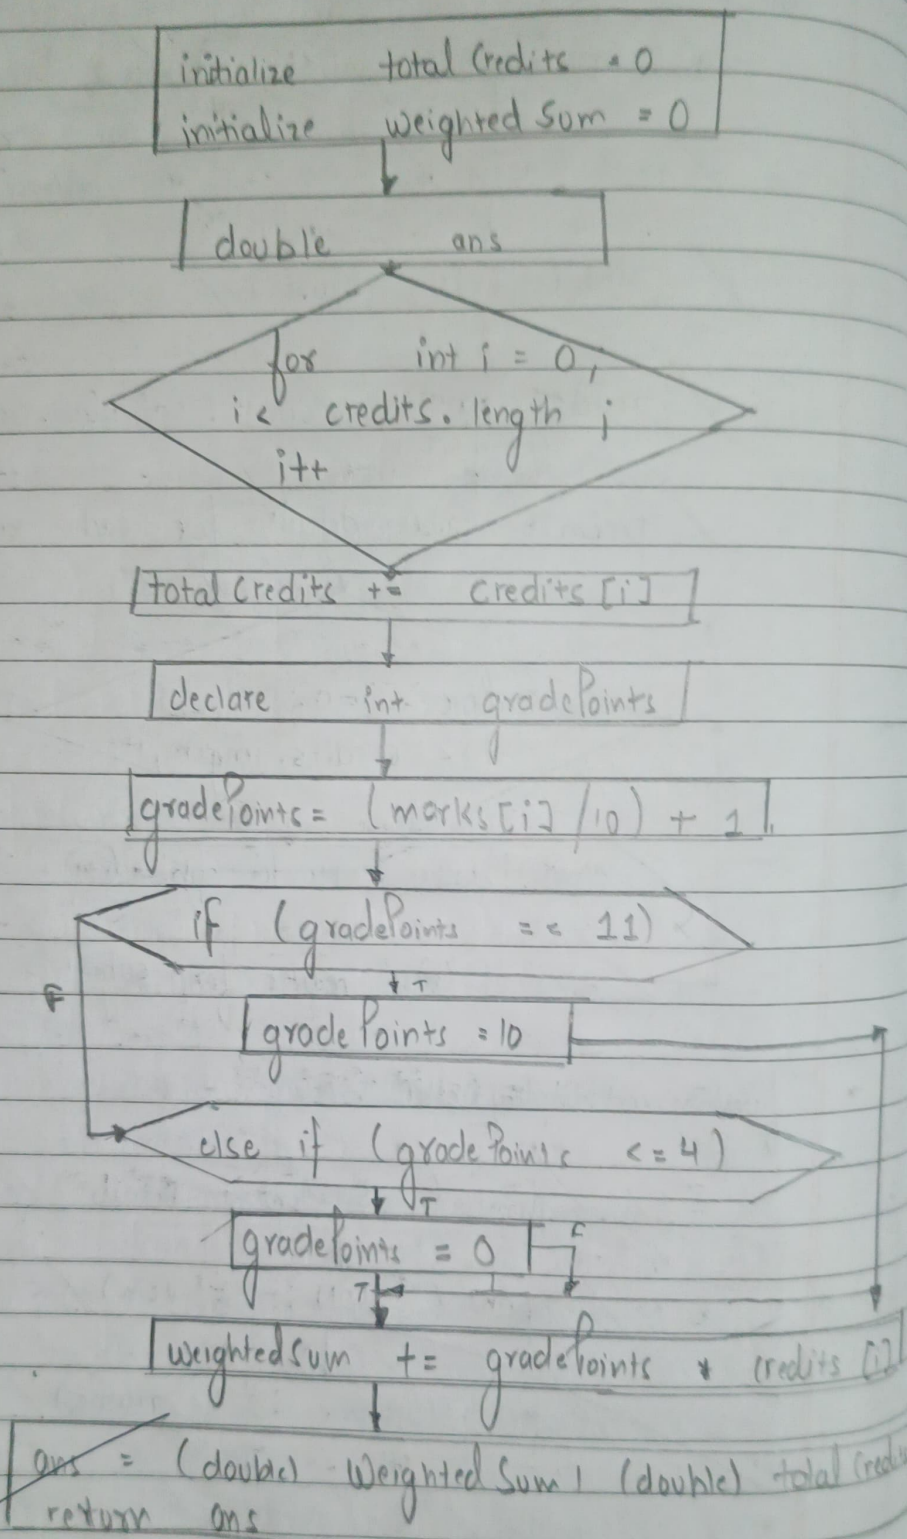 initialize totalCredits = 0
initialize weightedSum = 0
double ans
for int i = 0,
i < credits.length ;
i++
totalCredits += credits[i]
declare int gradePoints
gradePoints = (marks[i] /10) + 1
if (gradePoints == 11)
F
T
gradePoints = 10
else if (gradePoints <= 4)
T
gradePoints = 0
F
T
weightedSum += gradePoints * credits[i]
ans = (double) WeightedSum / (double) total
return ans